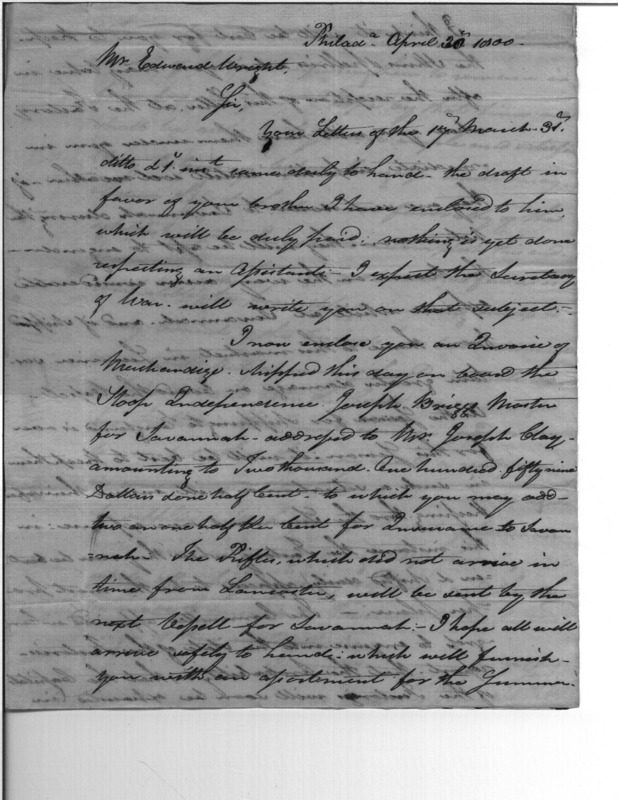 Philad.a April 1800.
Mr. Edward Wright,
Sir,
Your Letters of the 19th March. 3d.
ditto & inst. came duly to hand. the draft in
favor of your brother I have enclosed to him,
which will be duly paid: nothing is yet done
respecting an Assistant:- I expect the Secretary
of War. will write you on that subject:-
I now enclose you an Invoice of
Merchandize. Shipped this day on board the
Sloop Independence Joseph Briggs Master
for Savannah- addressed to Mr. Joseph Clay-
amounting to Two thousand. One hundred fifty nine
Dollars & one half Cent- to which you may add-
two an one half Cent for Insurance to Savan
=nah- The Rifles, which did not arrive in
time from Lancaster, will be sent by the
next Vessell for Savannah:- I hope all will
arrive safely to hand: which will furnish-
you with an assortment for the Summer.